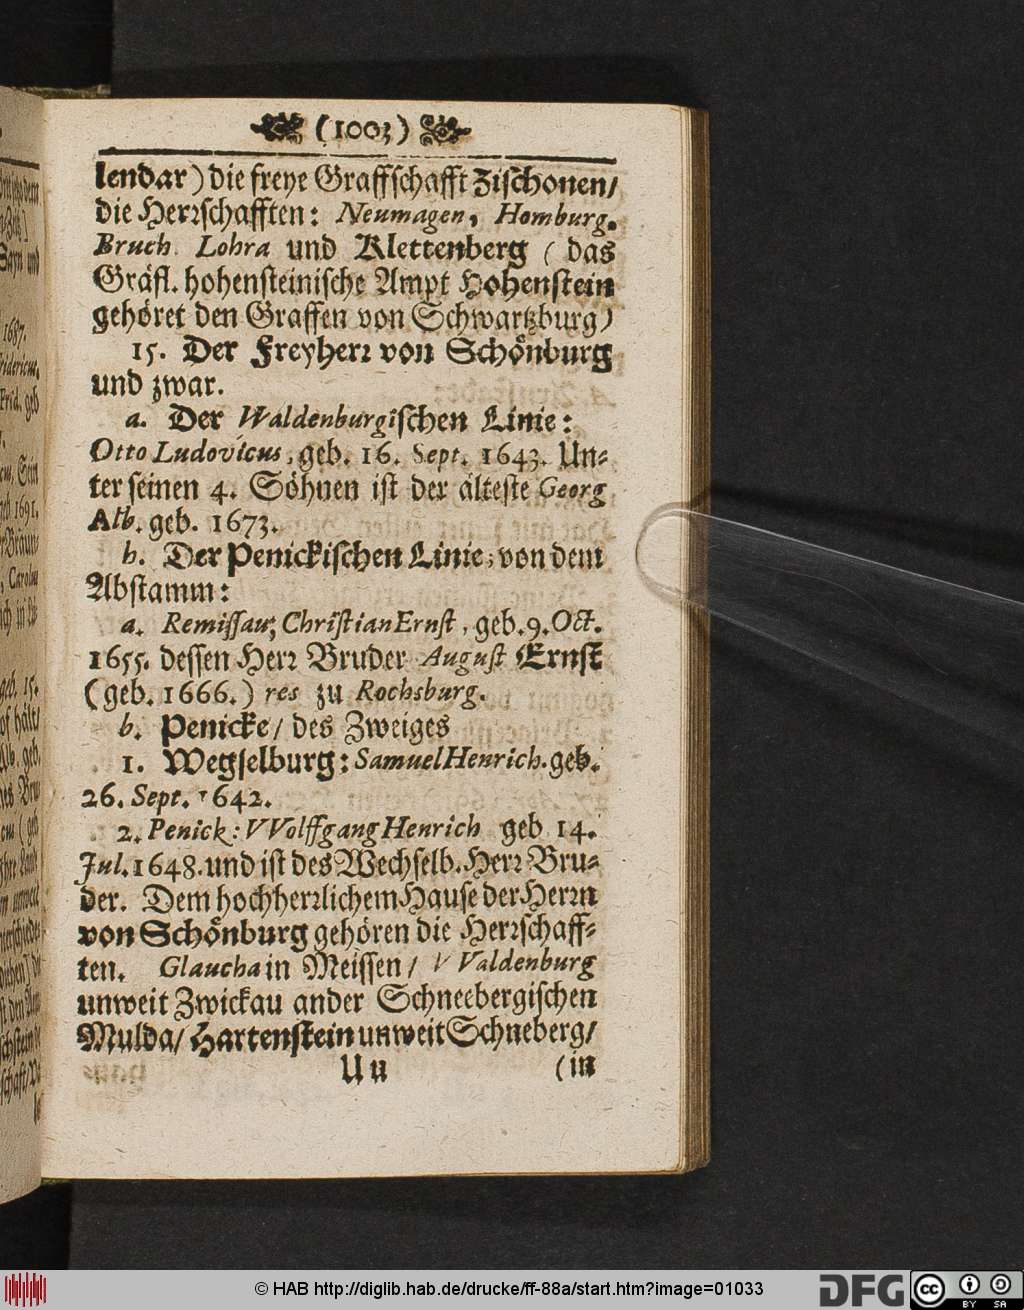 (1003)
lendar) die freye Graffschafft Zischonen/
die Herrschafften: Neumagen, Homburg.
Bruch. Lohra und Klettenberg ( das
Gräfl. hohensteinische Ampt Hohenstein
gehöret den Graffen von Schwartzburg)
15. Der Freyherr von Schönburg
und zwar.
a. Der Waldenburgischen Linie:
Otto Ludovicus, geb. 16. Sept. 1643. Un-
ter seinen 4. Söhnen ist der älteste Georg
Alb. geb. 1673.
b. Der Penickischen Linie, von dem
Abstamm:
a. Remissau; Christian Ernst, geb. 9. Oct.
1655. dessen Herr Bruder August Ernst
(geb. 1666.) res zu Rochsburg.
b. Penicke/ des Zweiges
1. Wegselburg: Samuel Henrich. geb.
26. Sept. 1642.
2. Penick: VVolffgang Henrich geb 14.
Jul. 1648. und ist des Wechselb. Herr Bru-
der. Dem hochherrlichem Hause der Herrn
von Schönburg gehören die Herrschaff-
ten. Glaucha in Meissen/ VValdenburg
unweit Zwickau an der Schneebergischen
Mulda/ Hartenstein unweit Schneberg/
Uu (in
© HAB http://diglib.hab.de/drucke/ff-88a/start.htm?image=01033
DFG
cc BY SA